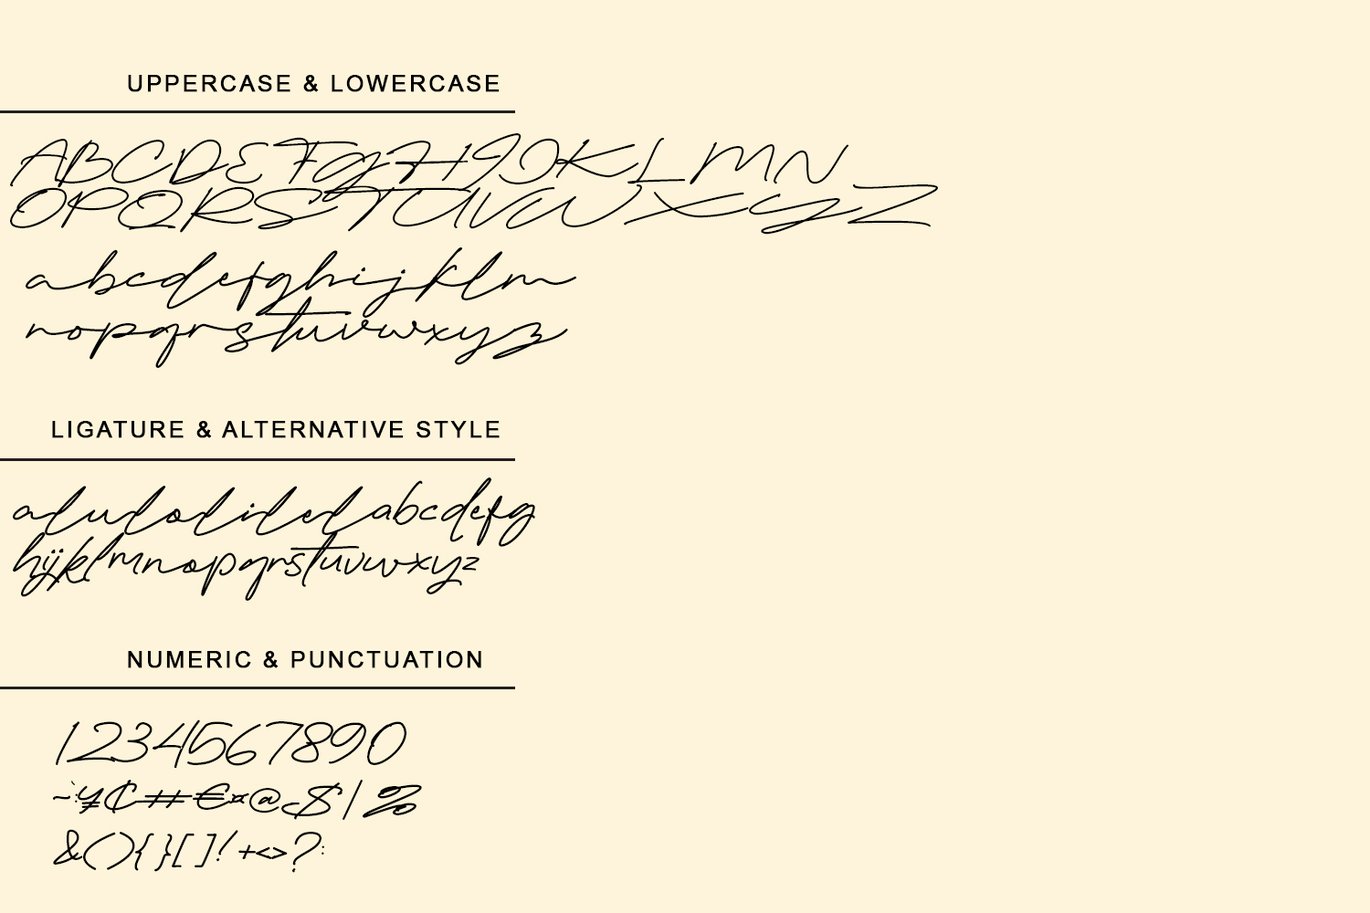 UPPERCASE & LOWERCASE
ABCDEFGHIJKLMN
OPQRSTUVWXYZ
abcdefghijklm
nopqrstuvwxyz
LIGATURE & ALTERNATIVE STYLE
aludolidedabcdefg
hijklmnopqrstuvwxyz
NUMERIC & PUNCTUATION
1234567890
~`:¥₵#€¤@$|%
&(){}[]!+<>?: